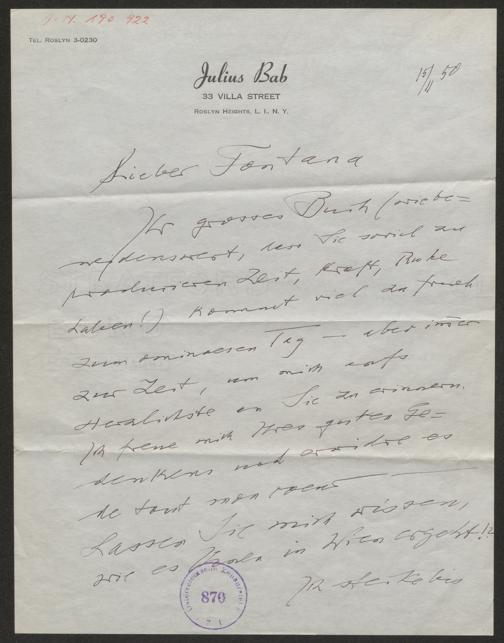 J. N. 190 922
TEL. ROSLYN 3-0230
Julius Bab
33 VILLA STREET
ROSLYN HEIGHTS, L. I., N. Y.
15/II 50
Lieber Fontana
Ihr grosses Buch (wie be=
neidenswert, dass Sie soviel zu
produzieren Zeit, Kraft, Ruhe
haben!) kommt viel zu früh
zum ominoesen Tag — aber immer
zur Zeit, um mich aufs
Herzlichste an Sie zu erinnern.
Ich freue mich Ihres guten Ge=
denkens und erwidre es
de tout mon coeur
Lassen Sie mich wissen,
wie es Ihnen in Wien ergeht!!
Ihr
870